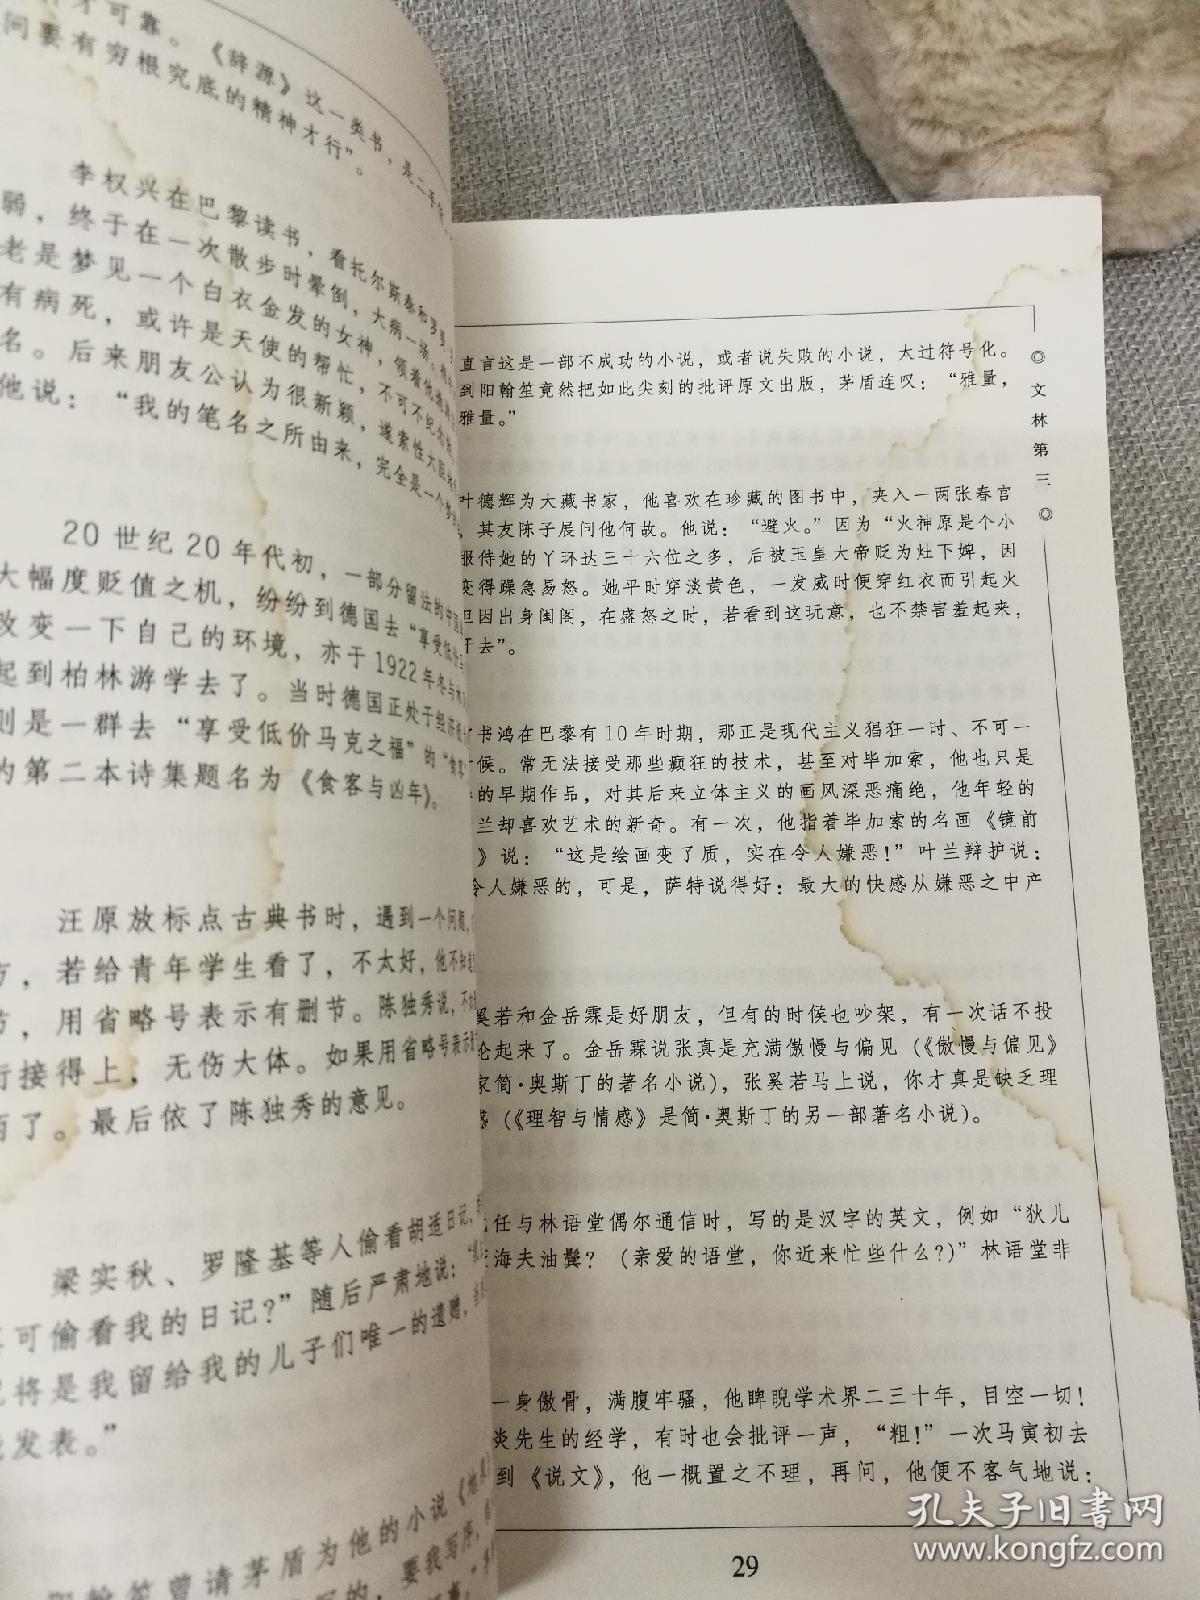 才可靠。《辞源》这一类书，是二手
问要有穷根究底的精神才行”。
李权兴在巴黎读书，看托尔斯泰和罗曼
弱，终于在一次散步时晕倒，大病一场。
老是梦见一个白衣金发的女神，领着他
有病死，或许是天使的帮忙，不可不纪念
名。后来朋友公认为很新颖，遂索性大
他说：“我的笔名之所由来，完全是一个
20世纪20年代初，一部分留法的中国
大幅度贬值之机，纷纷到德国去“享受低价
改变一下自己的环境，亦于1922年冬与
起到柏林游学去了。当时德国正处于经济
则是一群去“享受低价马克之福”的“食客”
的第二本诗集题名为《食客与凶年》。
汪原放标点古典书时，遇到一个问题，
方，若给青年学生看了，不太好，他不知道
节，用省略号表示有删节。陈独秀说，不
衔接得上，无伤大体。如果用省略号表示
而了。最后依了陈独秀的意见。
梁实秋、罗隆基等人偷看胡适日记，
可偷看我的日记？”随后严肃地说：
将是我留给我的儿子们唯一的遗赠，
发表。”
阳翰笙曾请茅盾为他的小说《地
的，要我写序，
直言这是一部不成功的小说，或者说失败的小说，太过符号化。
到阳翰笙竟然把如此尖刻的批评原文出版，茅盾连叹：“雅量，
雅量。”
叶德辉为大藏书家，他喜欢在珍藏的图书中，夹入一两张春宫
其友陈子展问他何故。他说：“避火。”因为“火神原是个小
服侍她的丫环达三十六位之多，后被玉皇大帝贬为灶下婢，因
变得躁急易怒。她平时穿淡黄色，一发威时便穿红衣而引起火
但因出身闺阁，在盛怒之时，若看到这玩意，也不禁害羞起来，
开去”。
书鸿在巴黎有10年时期，那正是现代主义猖狂一时、不可一
候。常无法接受那些癫狂的技术，甚至对毕加索，他也只是
的早期作品，对其后来立体主义的画风深恶痛绝，他年轻的
兰却喜欢艺术的新奇。有一次，他指着毕加索的名画《镜前
》说：“这是绘画变了质，实在令人嫌恶！”叶兰辩护说：
令人嫌恶的，可是，萨特说得好：最大的快感从嫌恶之中产
奚若和金岳霖是好朋友，但有的时候也吵架，有一次话不投
论起来了。金岳霖说张真是充满傲慢与偏见（《傲慢与偏见》
家简·奥斯丁的著名小说），张奚若马上说，你才真是缺乏理
感（《理智与情感》是简·奥斯丁的另一部著名小说）。
任与林语堂偶尔通信时，写的是汉字的英文，例如“狄儿
海夫油鬓？（亲爱的语堂，你近来忙些什么？）”林语堂非
一身傲骨，满腹牢骚，他睥睨学术界二三十年，目空一切！
炎先生的经学，有时也会批评一声，“粗！”一次马寅初去
到《说文》，他一概置之不理，再问，他便不客气地说：
◎文林第三◎
29
孔夫子旧书网
www.kongfz.com